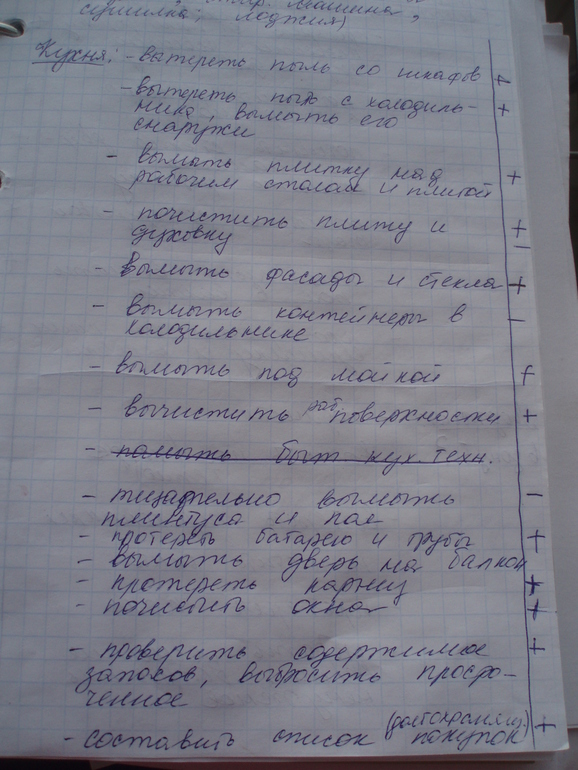 машина,
сушилка; лоджия)
Кухня: - вытереть пыль со шкафов +
- вытереть пыль с холодиль- +
ника, вымыть его
снаружи
- вымыть плитку над +
рабочим столом и плитой
- почистить плиту и +
духовку -
- вымыть фасады и стекла +
- вымыть контейнеры в -
холодильнике
- вымыть под мойкой +
- вычистить раб поверхности +
- помыть быт кух. техн.
- тщательно вымыть -
плинтуса и пол
- протереть батарею и трубы +
- вымыть дверь на балкон
- протереть карниз +
- почистить окна +
- проверить содержимое +
запасов, выбросить просро-
ченное
(долгохранящ.)
- составить список покупок +